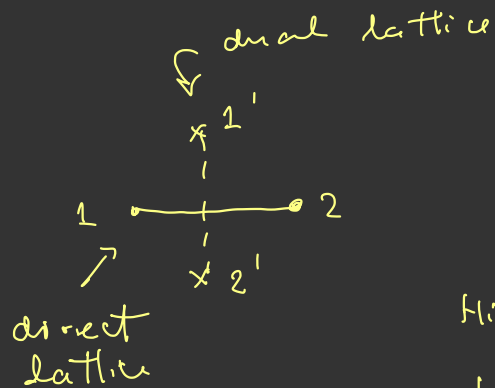 dual lattice
1'
1 2
2'
direct
lattice
Hi